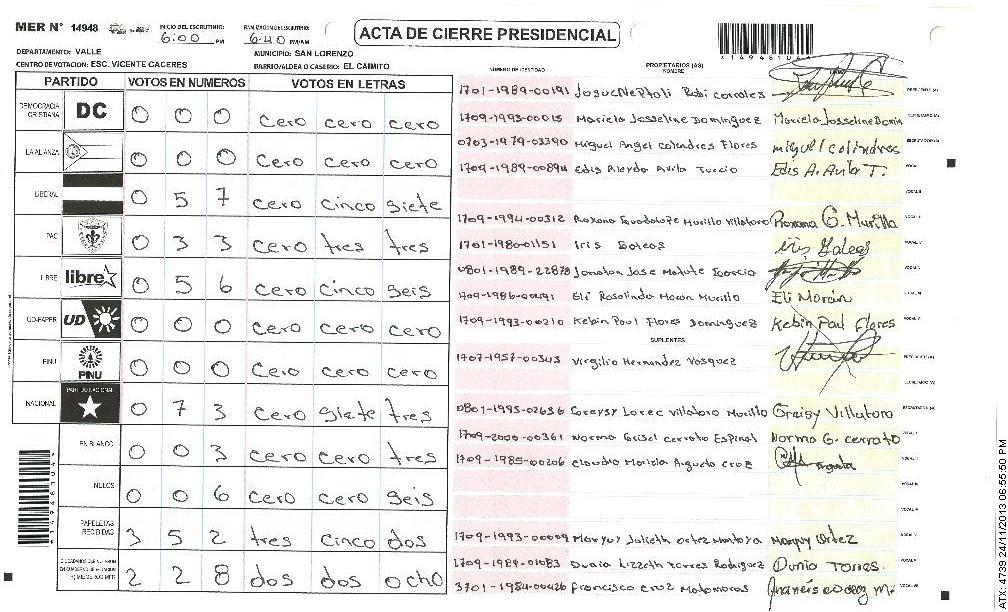 MER N° 14948
INICIO DEL ESCRUTINIO: 6:00 PM
FINALIZACION DEL ESCRUTINIO: 6:40 PM/AM
ACTA DE CIERRE PRESIDENCIAL
*14948104*
DEPARTAMENTO: VALLE
MUNICIPIO: SAN LORENZO
CENTRO DE VOTACION: ESC. VICENTE CACERES
BARRIO/ALDEA O CASERIO: EL CAIMITO
PARTIDO VOTOS EN NUMEROS VOTOS EN LETRAS
DEMOCRACIA CRISTIANA DC 0 0 0 cero cero cero
LA ALIANZA 0 0 0 cero cero cero
LIBERAL 0 5 7 cero cinco siete
PAC 0 3 3 cero tres tres
LIBRE libre 0 5 6 cero cinco seis
UD-FAPER UD 0 0 0 cero cero cero
PINU PINU 0 0 0 cero cero cero
NACIONAL PARTIDO NACIONAL 0 7 3 cero siete tres
EN BLANCO 0 0 3 cero cero tres
NULOS 0 0 6 cero cero seis
PAPELETAS RECIBIDAS 3 5 2 tres cinco dos
CIUDADANOS QUE VOTARON EN CUADERNO DE VOTACION Y MIEMBROS MER 2 2 8 dos dos ocho
NUMERO DE IDENTIDAD PROPIETARIOS (AS) NOMBRE
1701-1989-00191 PRESIDENTE (A)
1709-1993-00015 Mariela Josseline Dominguez Mariela Josseline Domin SECRETARIO (A)
0703-1979-03390 Miguel Angel colindres Flores miguel colindres ESCRUTADOR (A)
1709-1989-00894 Edis Avila Edis A. Avila T. VOCAL I
VOCAL II
1709-1994-00312 Roxana Guadalupe Murillo Villatoro Roxana G. Murillo
1701-1980-01151 Iris Galeas Iris Galeas
0801-1989-22878 Jonatan Jose Matute
1709-1986-00491 Eli Rosalindo Moran Murillo Eli Morán
1709-1993-00210 Kebin Paul Flores Dominguez Kebin Paul Flores
SUPLENTES
1707-1957-00343 Virgilio Hernandez Vasquez PRESIDENTE (A)
SECRETARIO (A)
0801-1995-02636 Greysy Villatoro Murillo Greisy Villatoro
1709-2000-00361 Norma Grisel cerrato Espinal Norma G. cerrato
1709-1985-00206 Claudia Mariela Argueta cruz Argueta
1709-1993-00009 Maryuy Julieth ortez Montoya Maryuy Ortez
1709-1989-01083 Dunia Lizzeth Torres Rodriguez Dunia Torres.
3701-1984-00426 Francisco Cruz Matamoros
ATX: 4739 24/11/2013 06:55:50 PM